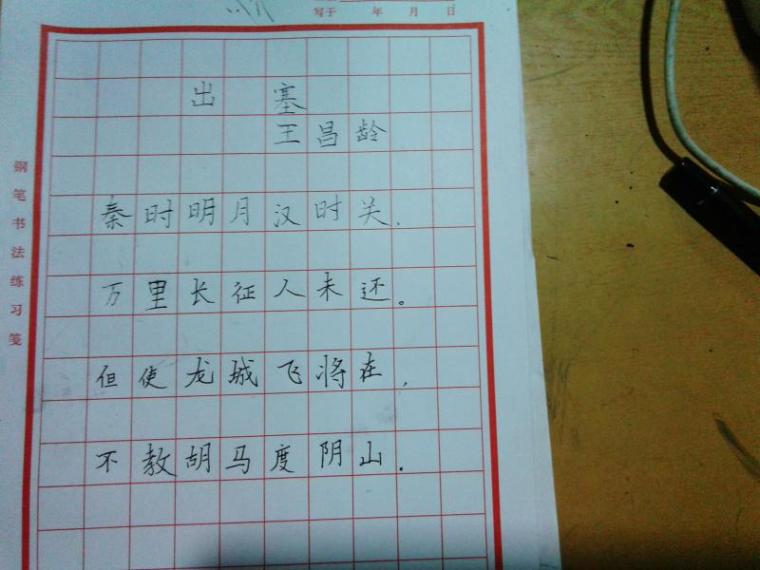 写于 年 月 日
出 塞
王昌龄
秦时明月汉时关,
万里长征人未还。
但使龙城飞将在,
不教胡马度阴山.
钢笔书法练习笺